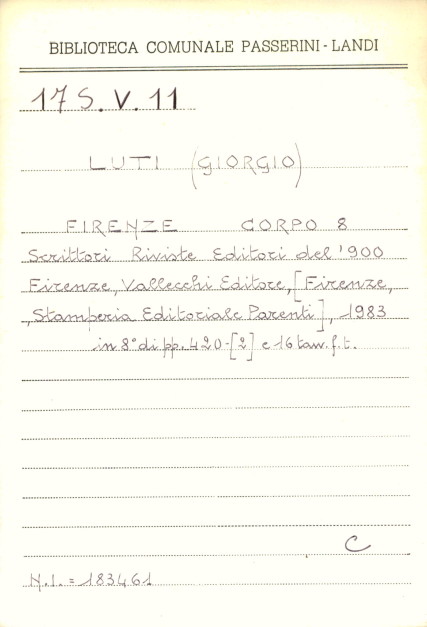 BIBLIOTECA COMUNALE PASSERINI - LANDI
17 S. V. 11
LUTI (GIORGIO)
FIRENZE CORPO 8
Scrittori Riviste Editori del '900
Firenze, Vallecchi Editore, [Firenze,
, Stamperia Editoriale Parenti], 1983
in 8° di pp. 420-[2] e 16 tav. f. t.
C
N.I. = 183461